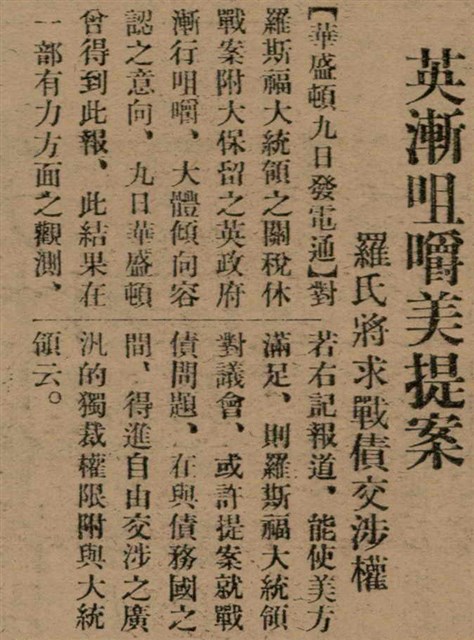 英漸咀嚼美提案
羅氏將求戰債交涉權
【華盛頓九日發電通】對
羅斯福大統領之關稅休
戰案附大保留之英政府
漸行咀嚼、大體傾向容
認之意向、九日華盛頓
曾得到此報、此結果在
一部有力方面之觀測、
若右記報道、能使美方
滿足、則羅斯福大統領
對議會、或許提案就戰
債問題、在與債務國之
間、得進自由交涉之廣
汎的獨裁權限附與大統
領云。